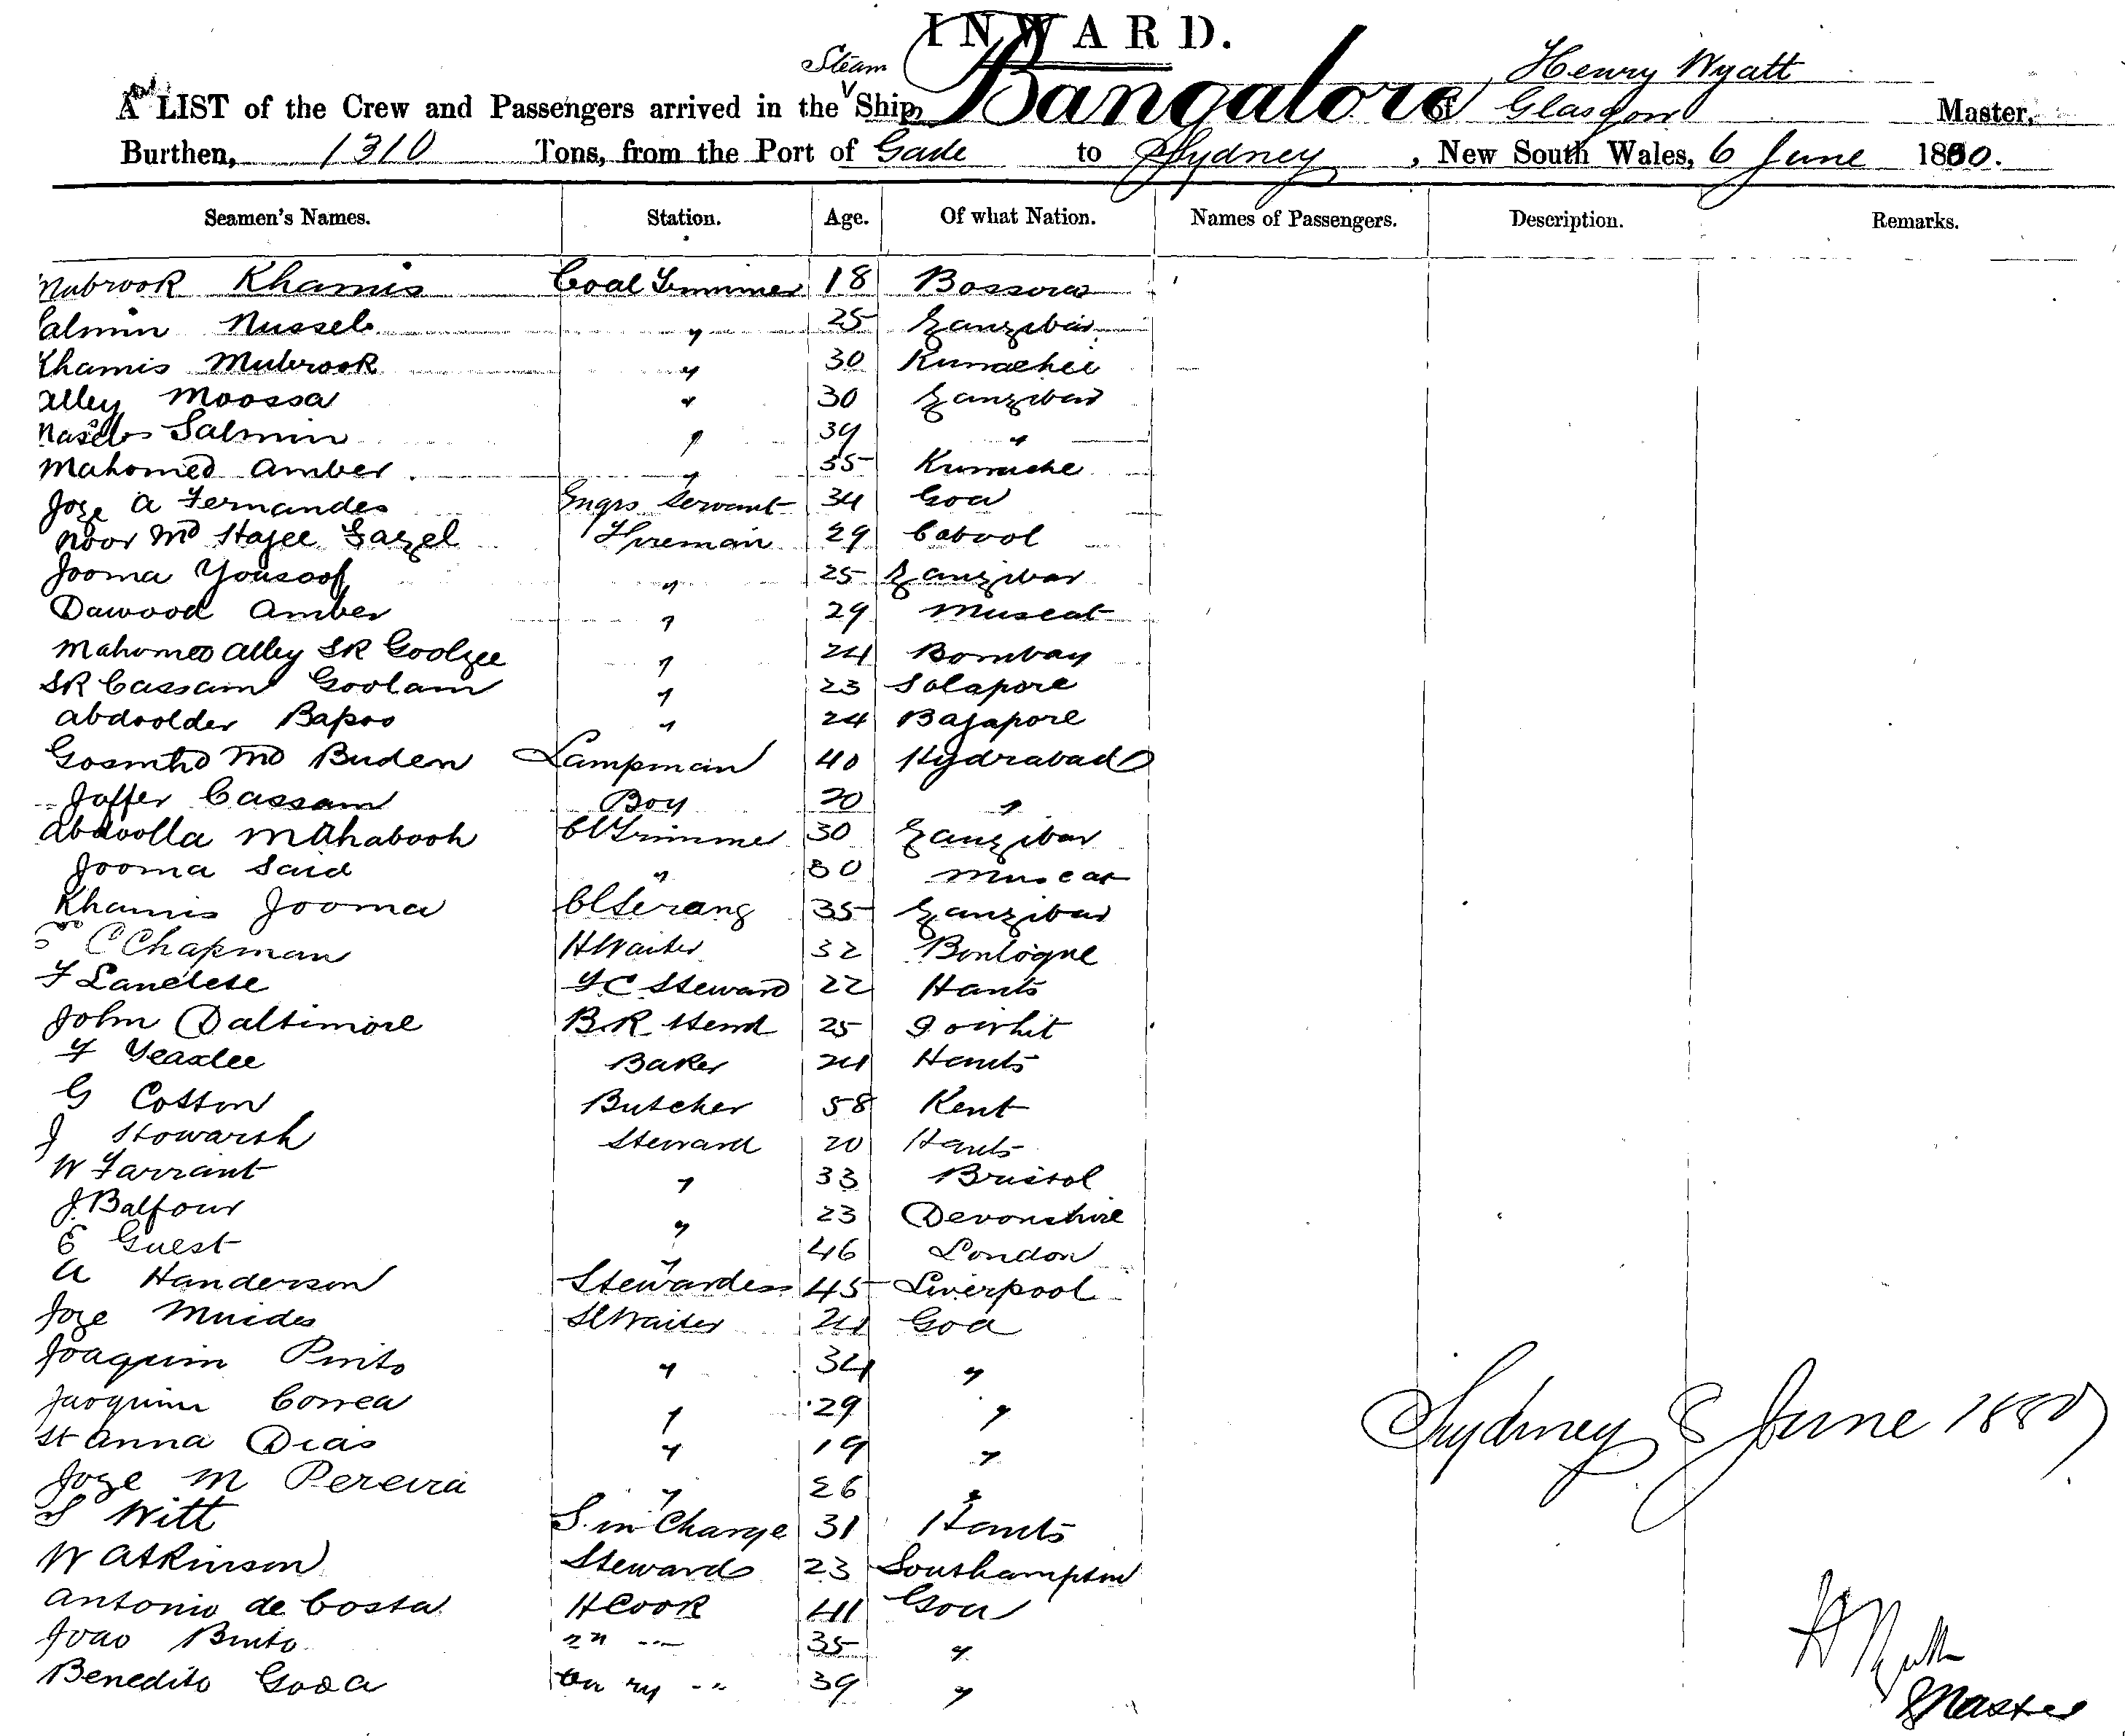 INWARD.
Steam
Henry Wyatt
A LIST of the Crew and Passengers arrived in the Ship Bangalore of Glasgow Master,
Burthen, 1310 Tons, from the Port of to Sydney, New South Wales, 6 June 1880.
Seamen's Names. Station. Age. Of what Nation. Names of Passengers. Description. Remarks.
Mubrook Khamis Coal Trimmer 18
Salmin 25 Zanzibar
Khamis Mubrook " 30 Kurrachee
Alley Moossa " 30 Zanzibar
Salmin "
Mahomed Amber " 35
Joze A Fernandes Engrs Servant 34 Goa
Noor Md Hajee Fireman 29 Cabool
Jooma Yousoof " 25 Zanzibar
Dawood Amber " 29 Muscat
Mahomed Alley SK " 24 Bombay
SK Cassam Goolam " 23 Solapore
Bapoo " 24 Bajapore
Md Buden Lampman 40 Hydrabad
Jaffer Cassam Boy 20 "
Abdoolla 30 Zanzibar
Jooma Said " 30 Muscat
Khamis Jooma Cl Serang 35 Zanzibar
C Chapman H Waiter 32 Boulogne
F Steward 22 Hants
John Daltimore B.R. 25
F Yeaxlee Baker 24 Hants
G Cotton Butcher 58 Kent
J Steward 20 Hants
W Farrant " 33 Bristol
J. Balfour " 23 Devonshire
E Guest " 46 London
A Handerson Stewardess 45 Liverpool
Joze Waiter 24 Goa
Joaquim Pinto " 34 "
Correa " 29 "
St Anna Dias " 19 "
Joze M Pereira " 26 "
S Witt S. in Charge 31 Hants
W Atkinson Steward 23 Southampton
Antonio de Costa H Cook 41 Goa
Joao 35 "
Benedito 39 "
Sydney 8 June 1880
Master